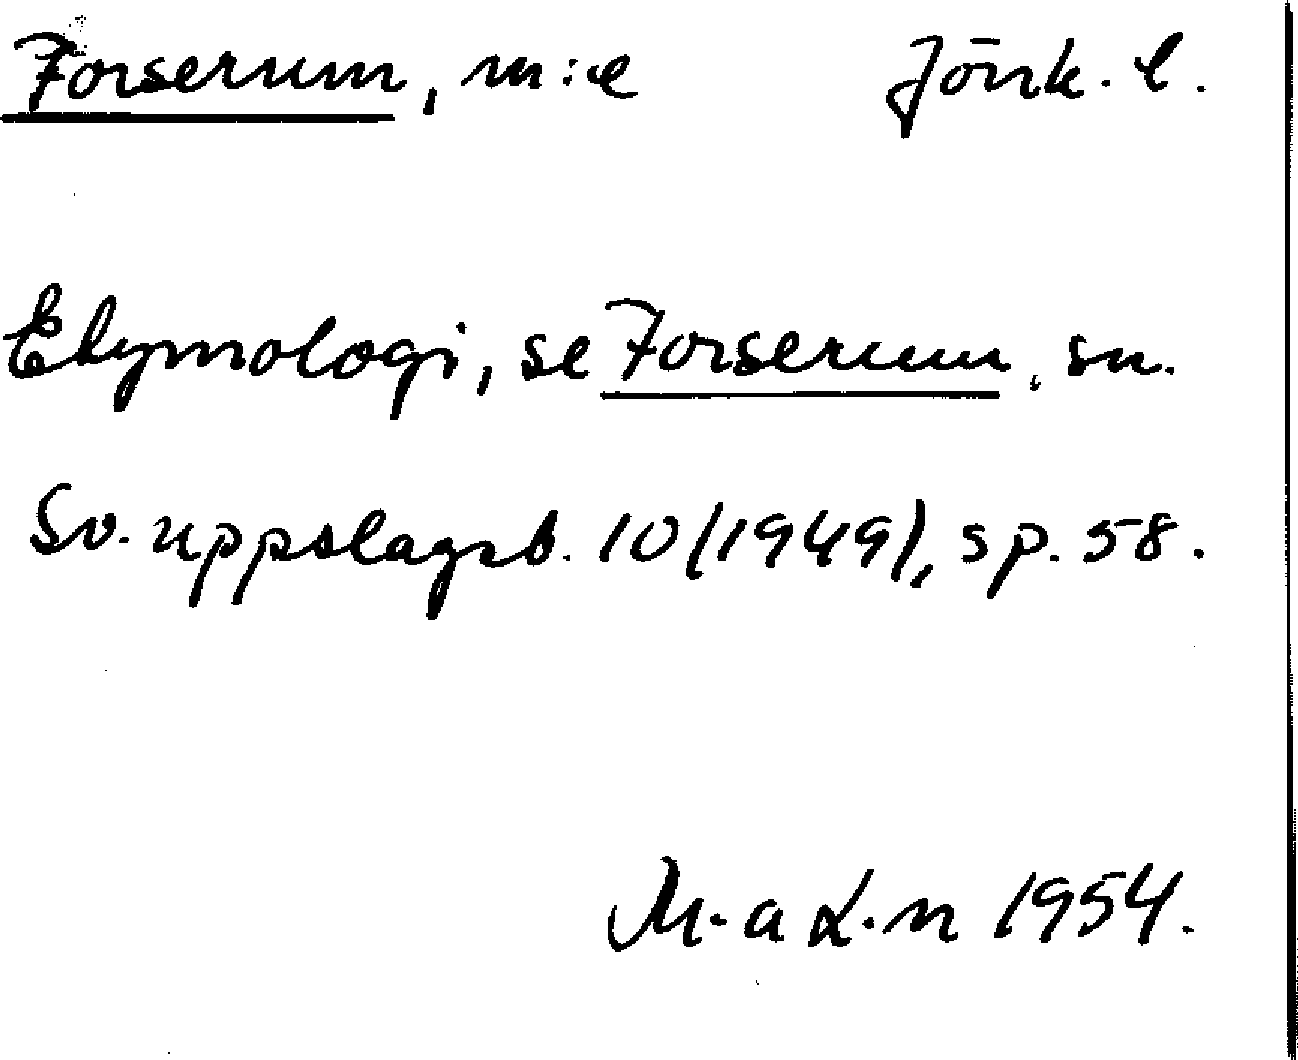 Forserum, m:e Jönk. l.
Etymologi, se Forserum, sn.
Sv. uppslagsb. 10 (1949), sp. 58.
M-a L-n 1954.